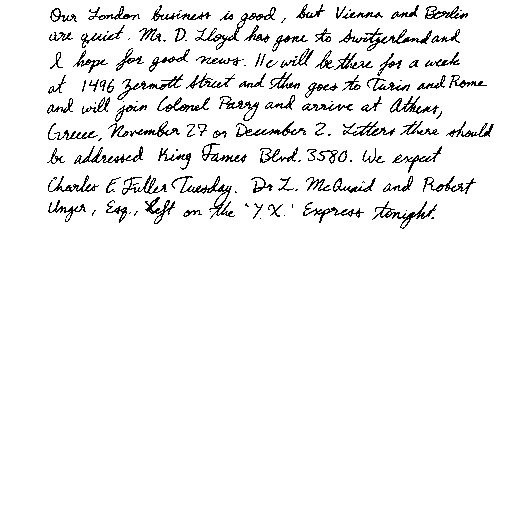 Our London business is good, but Vienna and Berlin
are quiet. Mr. D. Lloyd has gone to Switzerland and
I hope for good news. He will be there for a week
at 1496 Zermott Street and then goes to Turin and Rome
and will join Colonel Parry and arrive at Athens,
Greece, November 27 or December 2. Letters there should
be addressed King James Blvd. 3580. We expect
Charles E. Fuller Tuesday. Dr L. McQuaid and Robert
Unger, Esq., left on the 'Y.X.' Express tonight.